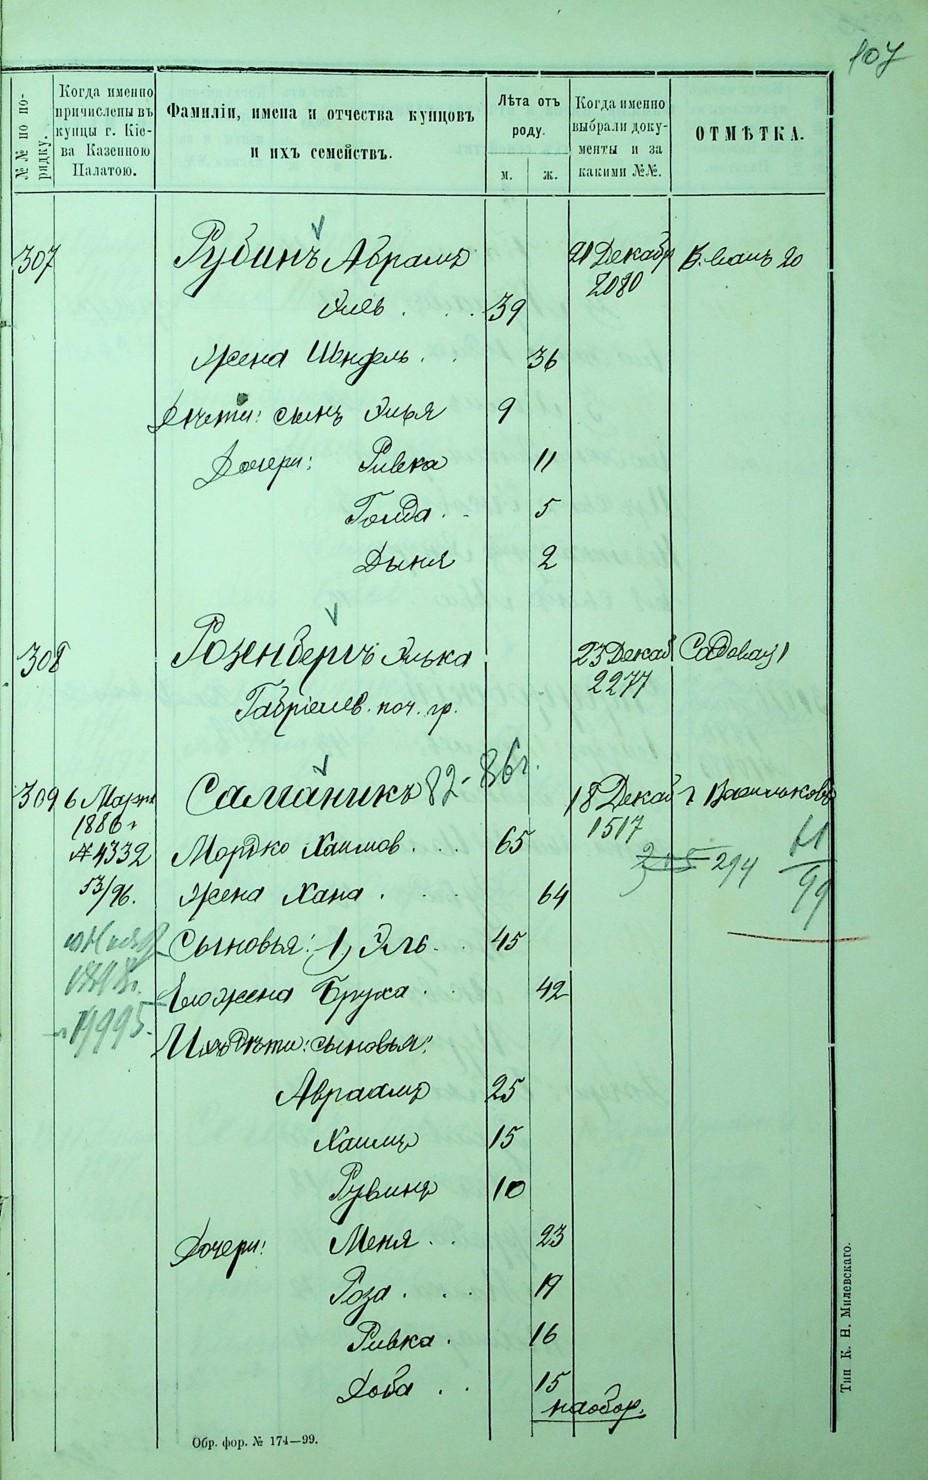 107
№№ по по-
рядку.
Когда именно
причислены въ
купцы г. Кіе-
ва Казенною
Палатою.
Фамиліи, имена и отчества купцовъ
и ихъ семействъ.
Лѣта отъ
роду.
м.
ж.
Когда именно
выбрали доку-
менты и за
какими №№.
ОТМѢТКА.
307 Рубинъ Абрамъ 21 Декабр
2080
39
Жена Шендель 36
Дѣти: сынъ Элья 9
Дочери: Ривка 11
Голда 5
Дыня 2
308 Розенбергъ Элька 23 Декаб Садовая 1
2277
Габріелев. поч. гр.
309 6 Марта Саманикъ 82-86г. 18 Декаб г. Васильковъ
1886 г 1517
№ 4332 Мордко Хаимов 65 294
53/96. Жена Хана 64 99
Сыновья: 1) Эль 45
1898г.
Его жена Бруха 42
19995.
Ихъ дѣти: сыновья:
Авраамъ 25
Хаимъ 15
Рувинъ 10
Дочери: Меня 23
Роза 19
Ривка 16
Доба 15
наобор.
Обр. фор. № 174—99.
Тип К. Н. Милевскаго.